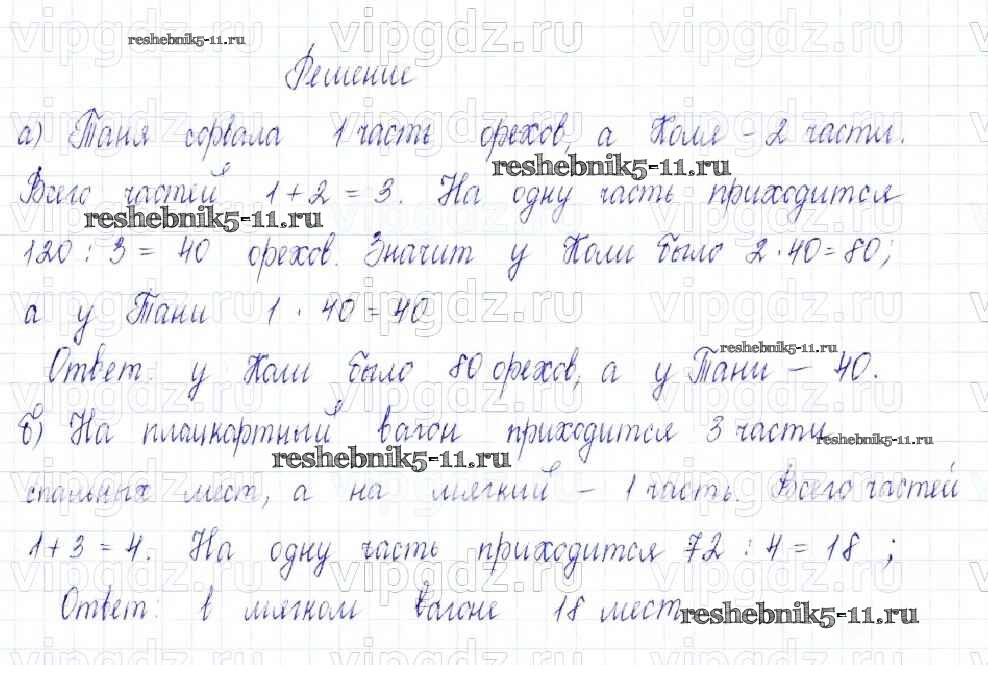 reshebnik5-11.ru
Решение
а) Таня сорвала 1 часть орехов, а Коля - 2 части.
reshebnik5-11.ru
Всего частей 1 + 2 = 3. На одну часть приходится
reshebnik5-11.ru
120 : 3 = 40 орехов. Значит у Коли было 2 · 40 = 80;
а у Тани 1 · 40 = 40
reshebnik5-11.ru
Ответ: у Коли было 80 орехов, а у Тани — 40.
б) На плацкартный вагон приходится 3 части
reshebnik5-11.ru
reshebnik5-11.ru
спальных мест, а на мягкий - 1 часть. Всего частей
1 + 3 = 4. На одну часть приходится 72 : 4 = 18 ;
Ответ: в мягком вагоне 18 мест
reshebnik5-11.ru
vipgdz.ru